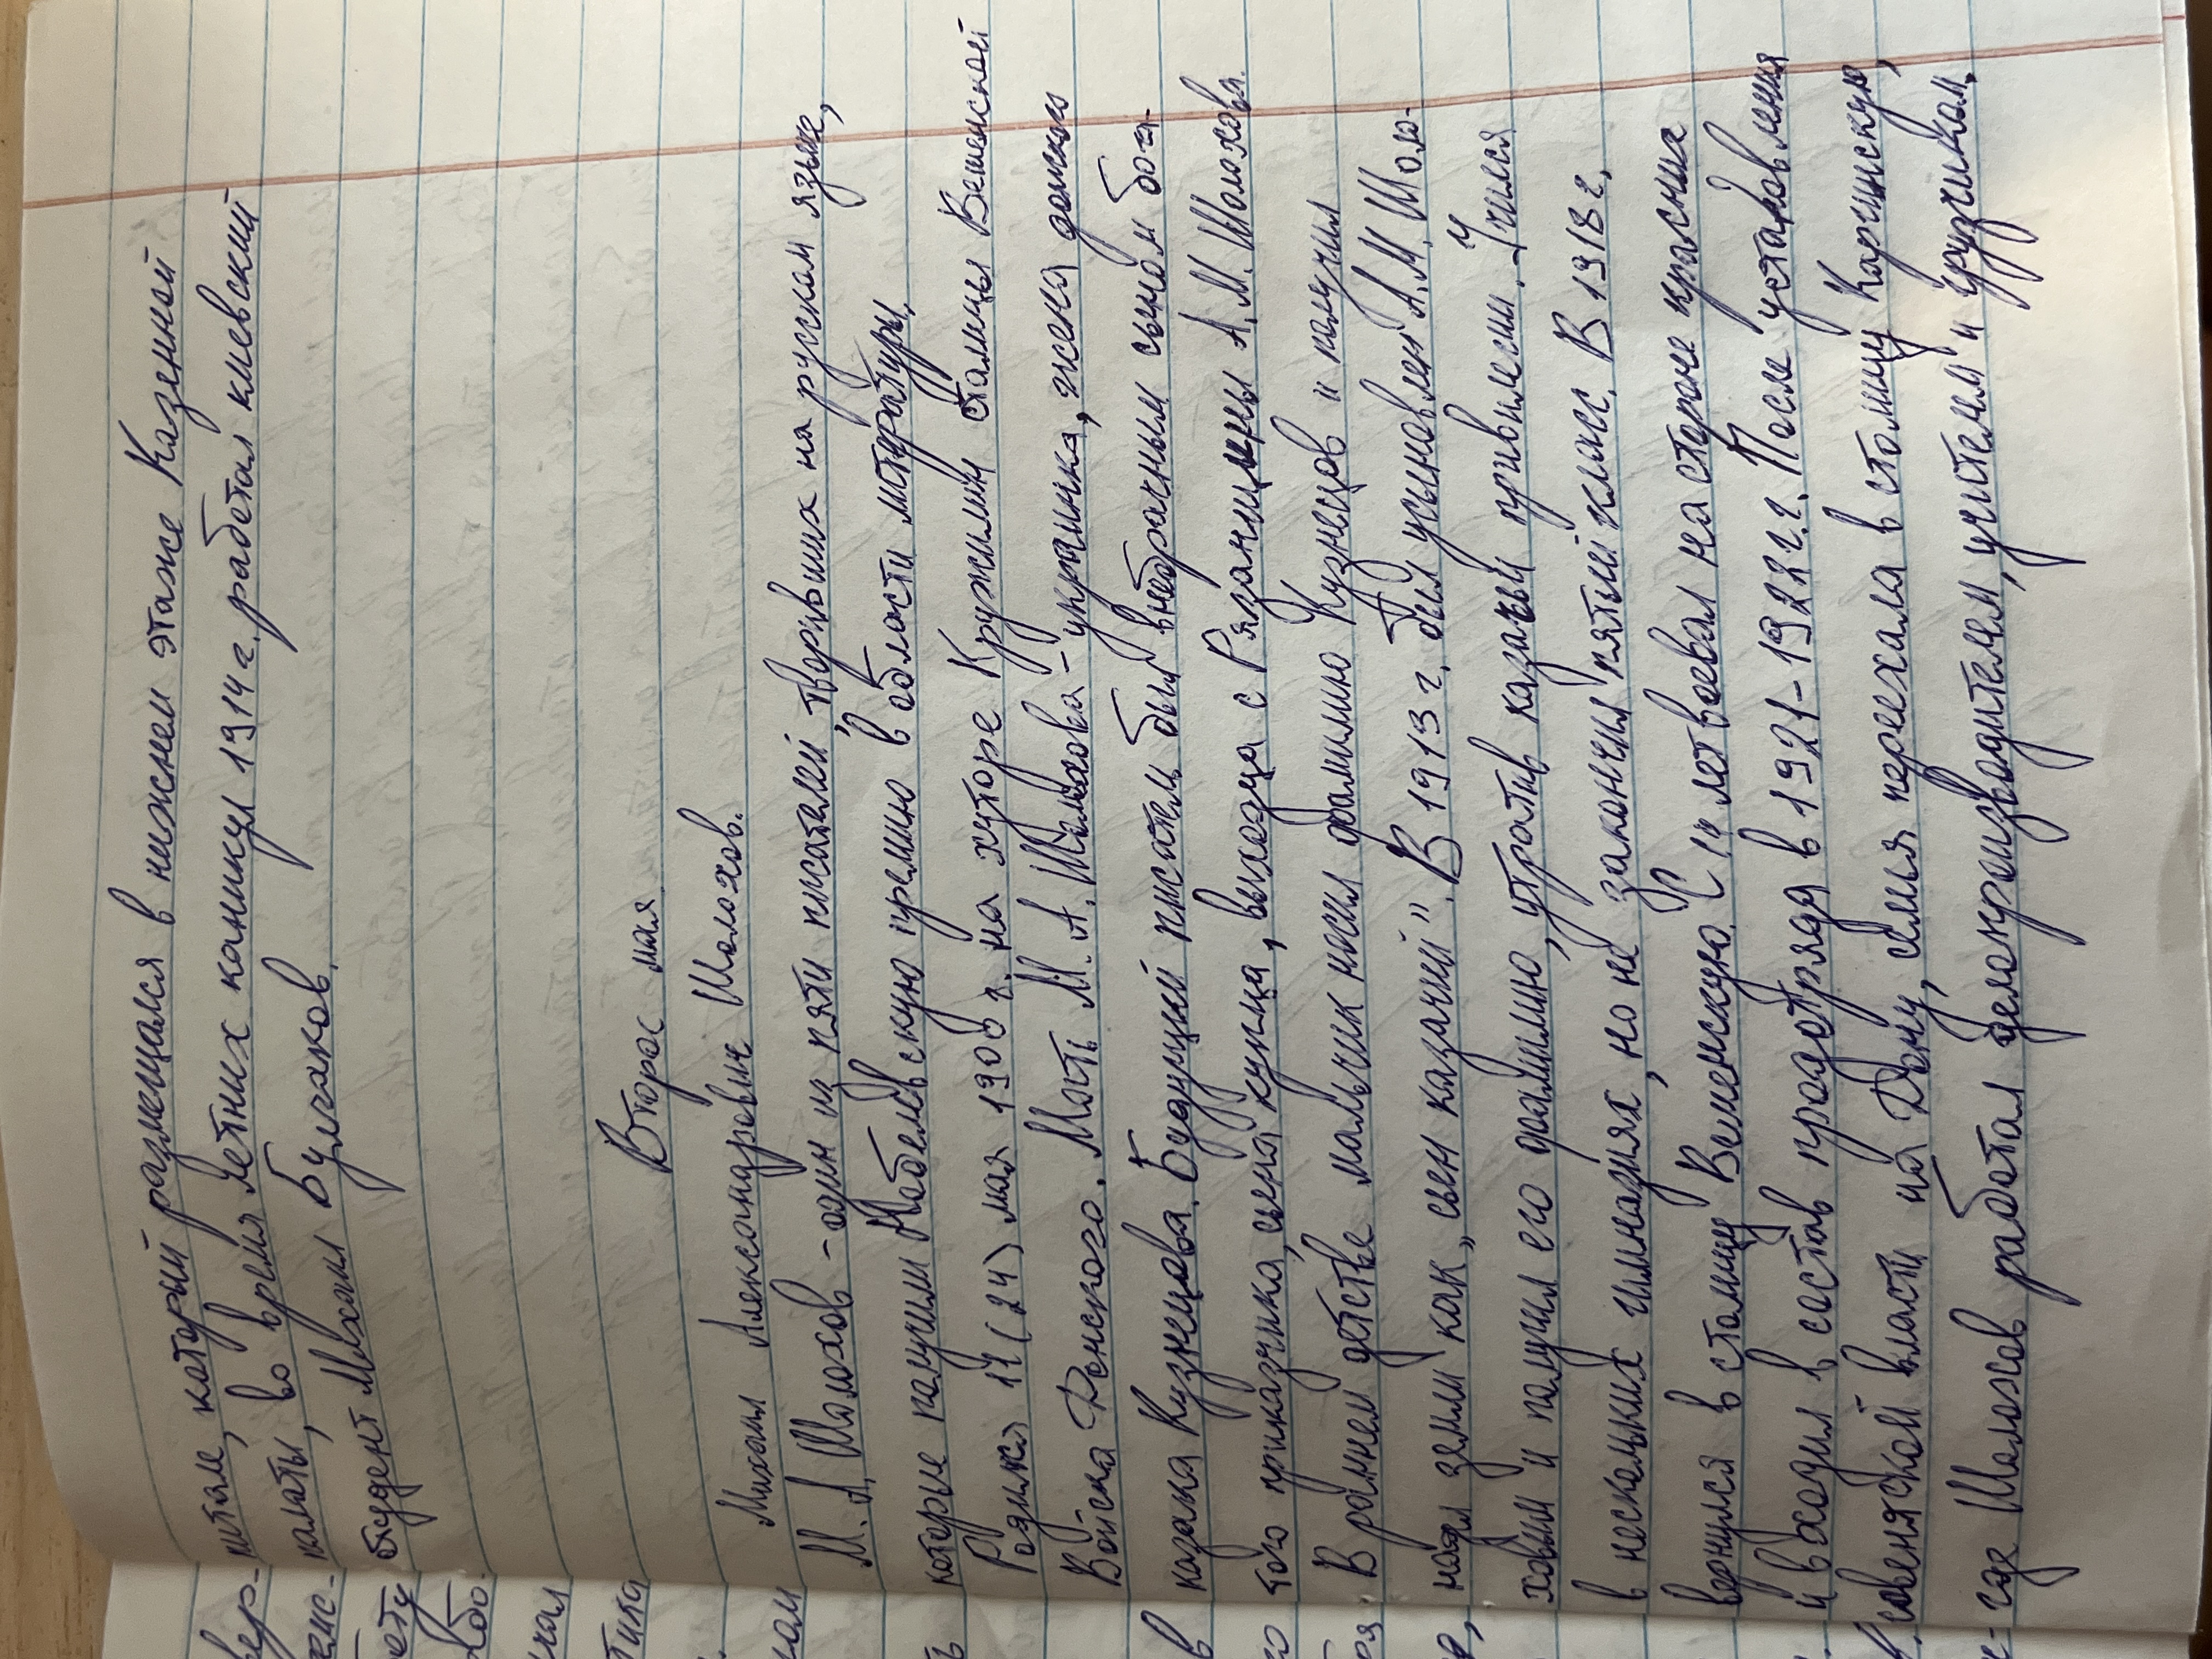 питале, который размещался в нижнем этаже Казенной
палаты, во время летних каникул 1914 г. работал киевский
студент Михаил Булгаков.
Второе мая.
Михаил Александрович Шолохов.
М. А. Шолохов - один из пяти писателей, творивших на русском языке,
которые получили Нобелевскую премию в области литературы.
Родился 11 (24) мая 1900 г. на хуторе Кружилин станицы Вешенской
Войска Донского. Мать М. А. Шолохова - украинка, жена донского
казака Кузнецова. Будущий писатель был внебрачным сыном бога-
того приказчика, сына купца, выходца с Рязанщины А. М. Шолохова.
В раннем детстве мальчик носил фамилию Кузнецов и получил
надел земли как „сын казачий". В 1913 г. был усыновлен А. М. Шоло-
ховым и получил его фамилию, утратив казачьи привилегии. Учился
в нескольких гимназиях, но не закончил пятый класс. В 1918 г.
вернулся в станицу Вешенскую. С 14 лет воевал на стороне красных
и входил в состав продотряда в 1921-1922 г.г. После установления
советской власти на Дону, семья переехала в станицу Каргинскую,
где Шолохов работал делопроизводителем, учителем и грузчиком,
вер-
ету
або-
тика